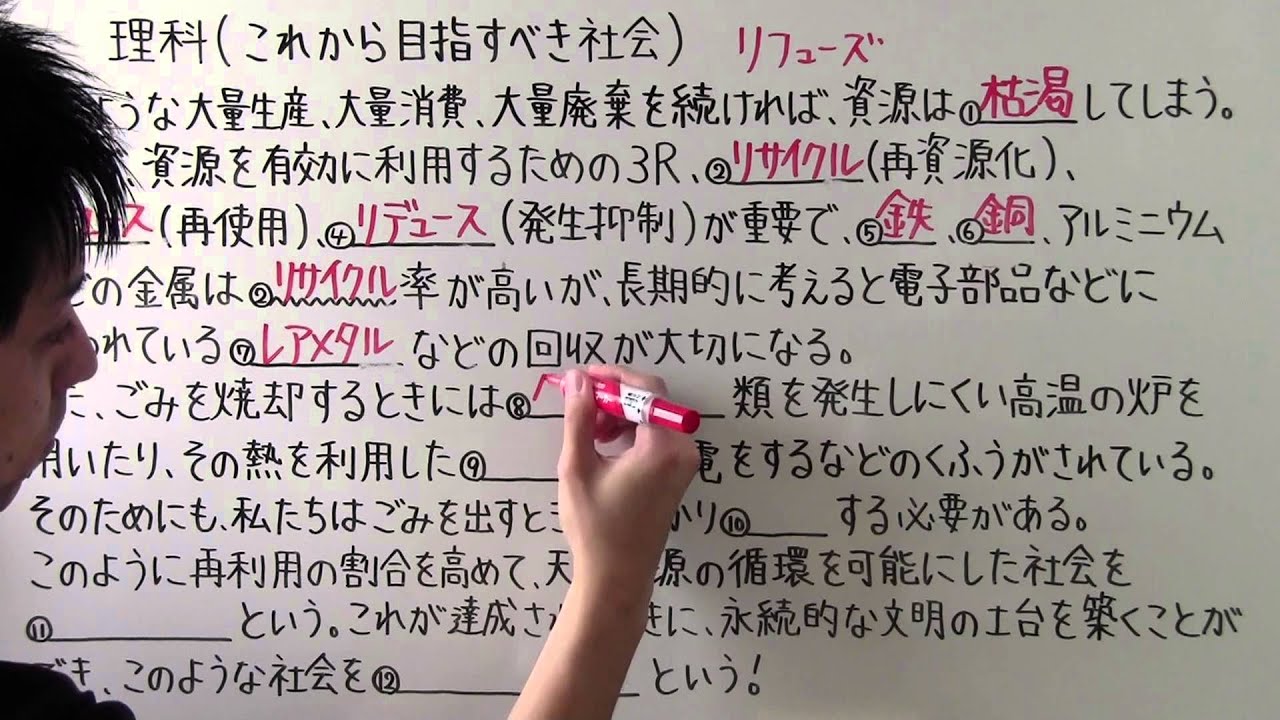 理科(これから目指すべき社会) リフューズ
ような大量生産、大量消費、大量廃棄を続ければ、資源は①枯渇してしまう。
、資源を有効に利用するための3R、②リサイクル(再資源化)、
ス(再使用)、④リデュース(発生抑制)が重要で、⑤鉄、⑥銅、アルミニウム
どの金属は②リサイクル率が高いが、長期的に考えると電子部品などに
われている⑦レアメタルなどの回収が大切になる。
た、ごみを焼却するときには⑧ 類を発生しにくい高温の炉を
用いたり、その熱を利用した⑨ 電をするなどのくふうがされている。
そのためにも、私たちはごみを出すとき かり⑩ する必要がある。
このように再利用の割合を高めて、天 源の循環を可能にした社会を
⑪ という。これが達成さ きに、永続的な文明の土台を築くことが
でき、このような社会を⑫ という!